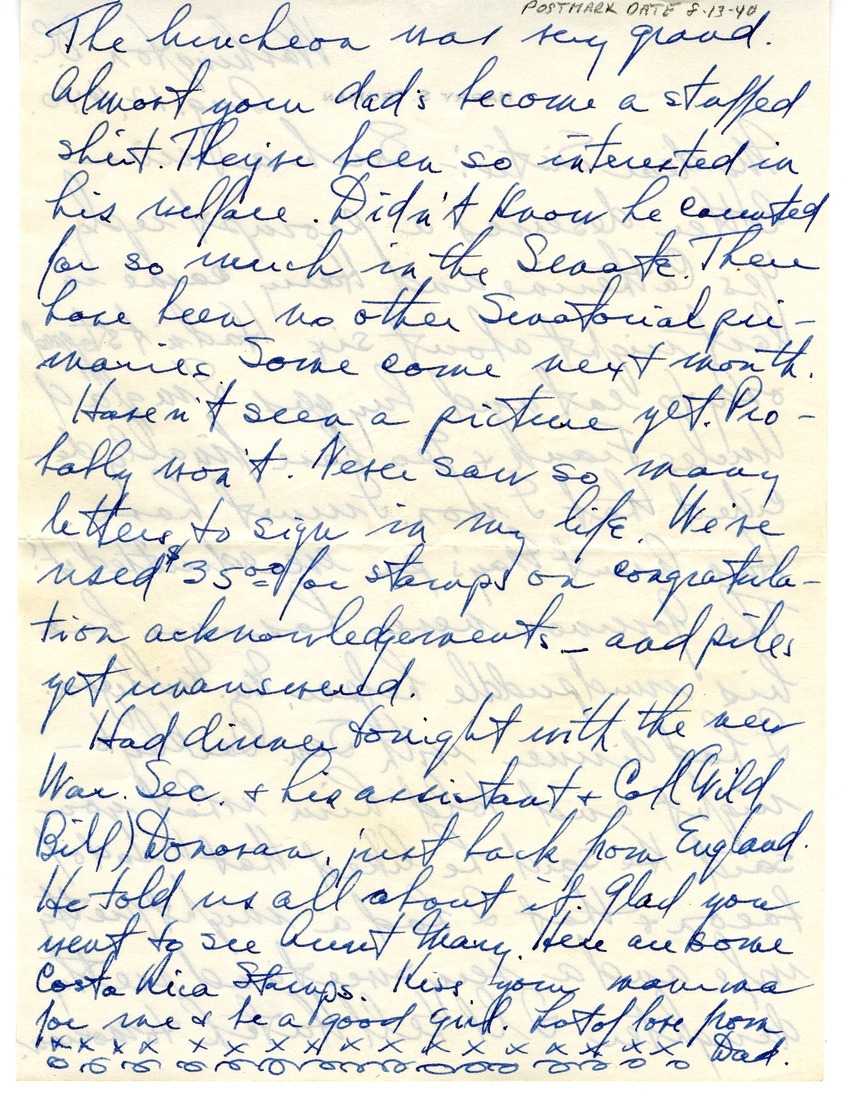 POSTMARK DATE 8-13-40
The luncheon was very grand.
Almost your dad's become a stuffed
shirt. They've been so interested in
his welfare. Didn't know he counted
for so much in the Senate. There
have been no other Senatorial pri-
maries. Some come next month.
Haven't seen a picture yet. Pro-
bally won't. Never saw so many
letters to sign in my life. We've
used $35.00 for stamps on congratula-
tion acknowledgements - and piles
yet unanswered.
Had dinner tonight with the new
War. Sec. & his assistant & Col (Wild
Bill) Donovan, just back from England.
He told us all about it. Glad you
went to see Aunt Mary. Here are some
Costa Rica Stamps. Kiss your mamma
for me & be a good girl. Lots of love from
x x x x x x x x x x x x x x x x x x Dad.